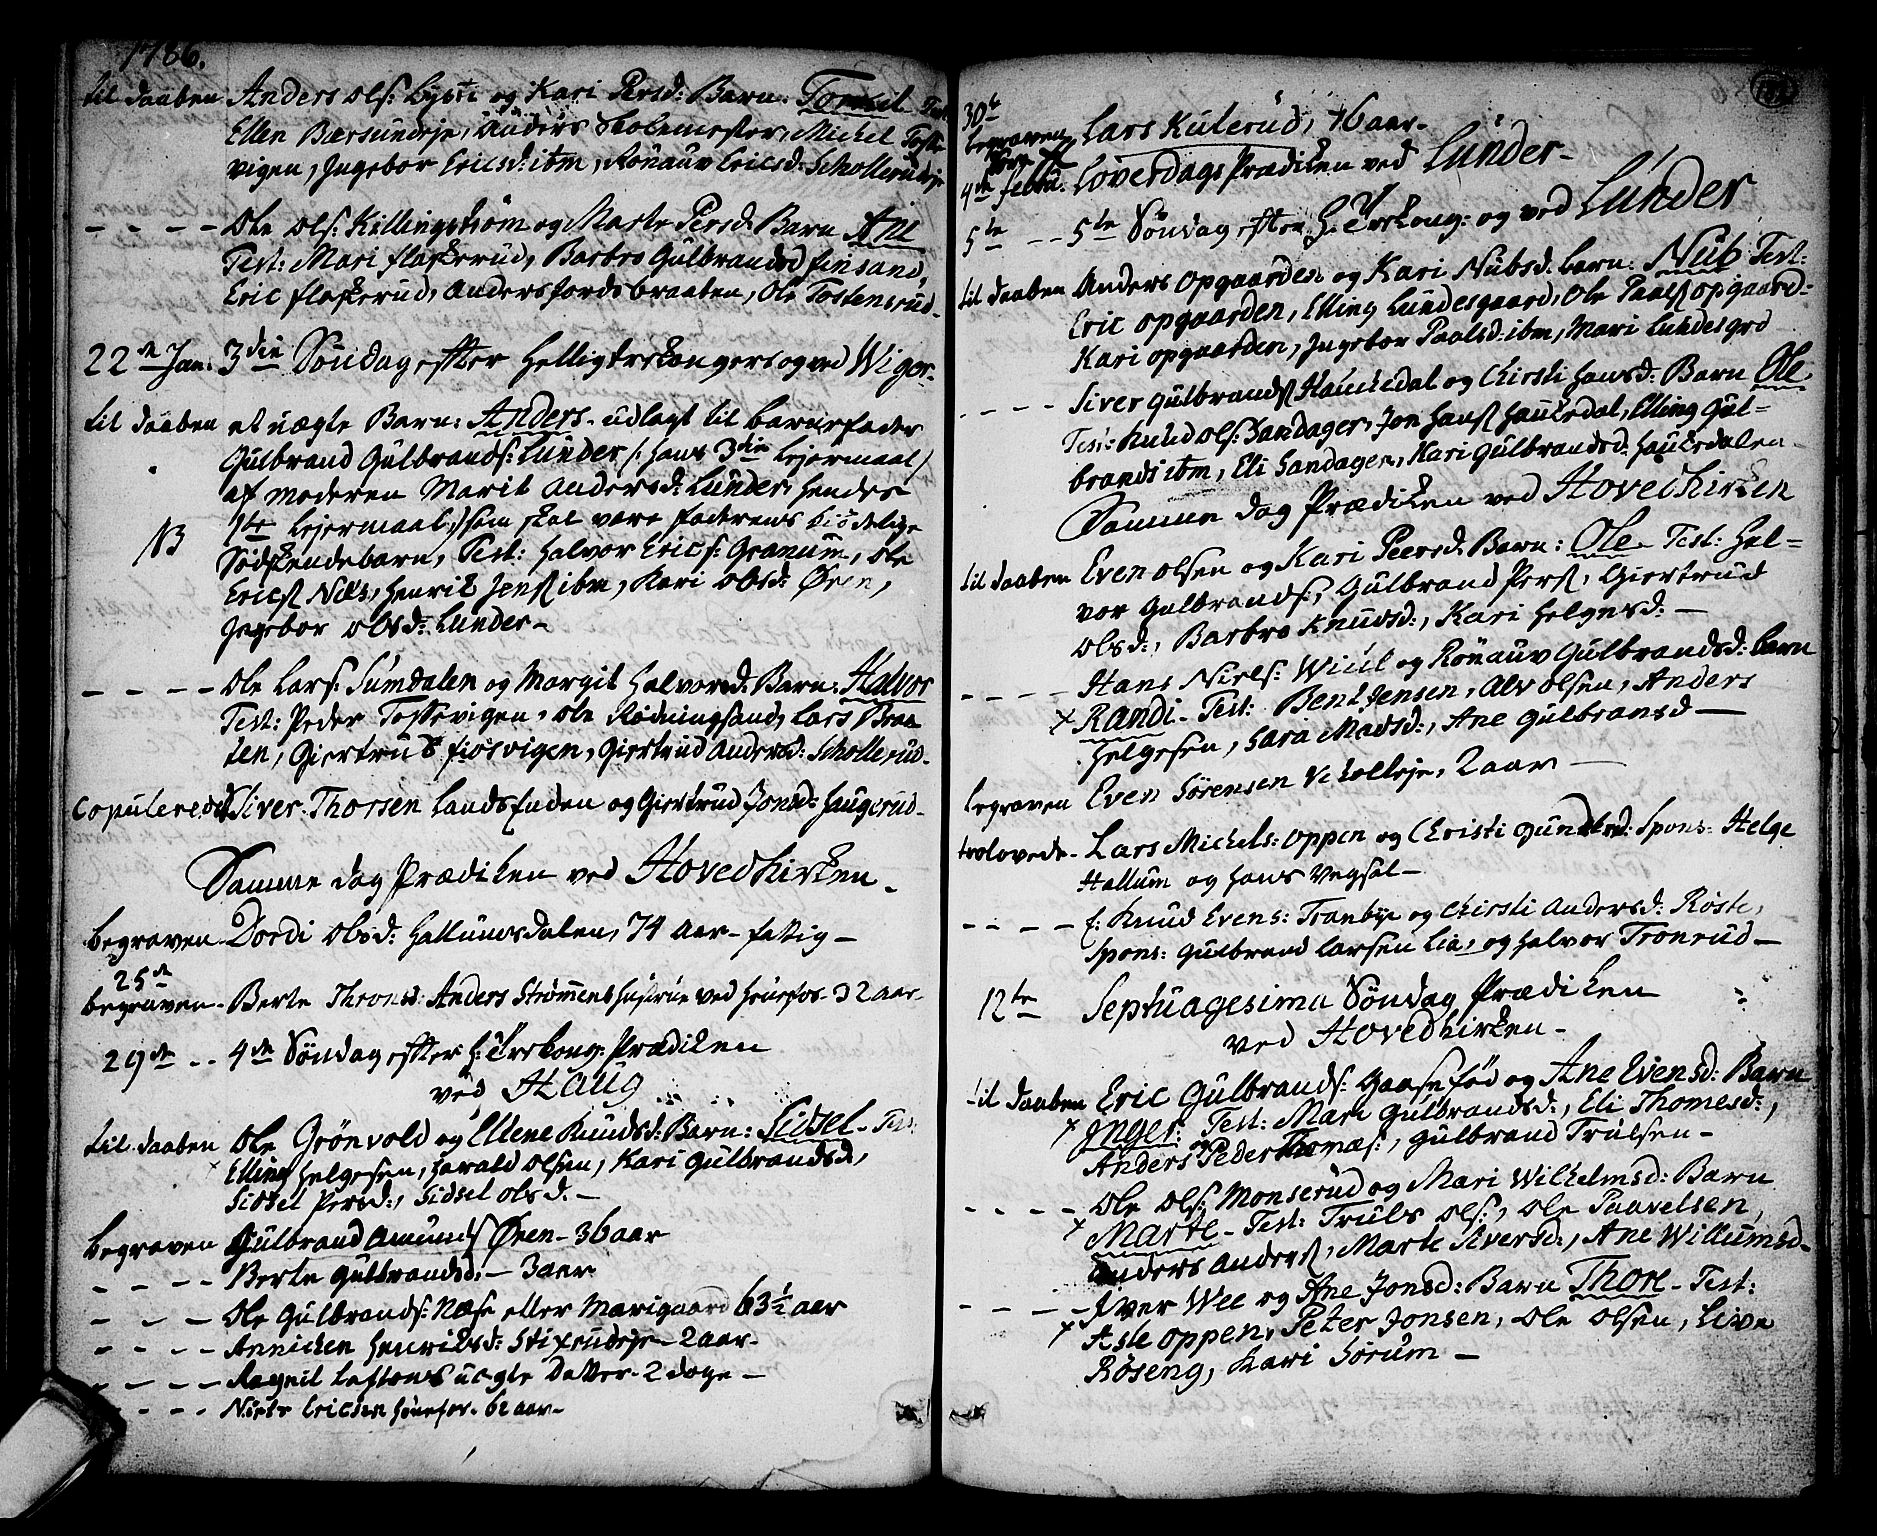 1786.
til daaben Anders Ols: Lyste og Kari Persd: Barn: Torkel Test
Ellen Bærsundeje, Anders Skolemester, Michel Toste-
vigen, Ingebor Ericsd: ibm, Rönauv Ericsd: Schollerudeje
- - - - Ole Ols: Killingström og Marte Persd: Barn Ane
Test: Mari flaskerud, Barbro Gulbrandsd finsand,
Eric flaskerud, Anders Jordsbraaten, Ole Tostensrud-
22de Jan: 3die Söndag efter Helligtrekongers og ved Wiger-
til daaben et uægte Barn: Anders - udlagt til barnefader
Gulbrand Gulbrands: Lunder /: hans 3die Lejermaal /
af moderen Marit Andersd: Lunder, hendes
NB 1te Lejermaal,) som skal være faderens kiödelige
Södskendebarn, Test: Halvor Erics: Granum, Ole
Ericss Næs, Henrik Jenss ibm, Kari Olsd: Øren,
Ingebor Olsd: Lunder-
- - - - Ole Lars: Sumdalen og Margit Halvorsd: Barn: Halvor
Test: Peder Tostevigen, Ole Rödningsand, Lars Braa
ten, Giertrud fiösvigen, Giertrud Andersd: Schollerud-
Copulerede Siver Thorsen Landsenden og Giertrud Jonsd: Haugerud-
Samme dag Prædiken ved Hovedkirken-
begraven Dordi Olsd: Hallumsdalen, 74 Aar- fattig-
25de
begraven- Berte Thronsd: Anders Strömmens Hustrue ved Hönefos- 32 aar-
29de - - 4de Söndag efter H: Trekong: Prædiken
ved Haug
til daaben Ole Grönvold og Ellene Knudsd: Barn: Sidsel- Test:
Elling Helgesen, Harald Olsen, Kari Gulbrandsd,
Sidsel Persd:, Sidsel Olsd.-
begraven Gulbrand Amunds Øren- 36 aar
- - - - Berte Gulbrandsd:- 3 aar
- - - Ole Gulbrands: Næse eller Marigaard 63½ aar
- - - - Annichen Henriksd: Stixrudeje- 2 aar-
- - - - Ragnil uægte Datter- 2 dage-
- - - - Niels Ericsen Hönefos- 62 aar-
30te
begraven Lars Kulerud, 46 aar-
4de febru: Löverdags Prædiken ved Lunder-
5te - - 5te Söndag efter H: Trekong: og ved Lunder
til daaben Anders Opgaarden og Kari Nubsd: barn: Nub Test:
Eric Opgaarden, Elling Lundesgaard, Ole Paals Opgaard-
Kari Opgaarden, Ingebor Paalsd: ibm, Mari Lundesgrd
- - - - Siver Gulbrandss Haukedal og Chirsti Hansd: Barn Ole
Test: Knud Ols: Sandager, Jon Hanss Haukedal, Elling Gul-
brands ibm, Eli Sandager, Kari Gulbrandsd: Haukedalen-
Samme dag Prædiken ved Hovedkirken
til daaben Even Olsen og Kari Peersd: Barn: Ole- Test: Hal-
vor Gulbrands:, Gulbrand Pers, Giertrud
Olsd:, Barbro Knudsd:, Kari Helgesd:-
- - - - Hans Niels: Wiul og Rönauv Gulbrandsd: barn
x Randi- Test: Bent Jensen, Alv Olsen, Anders
Helgesen, Sara Madsd:, Ane Gulbransd-
begraven Even Sörensen, 2 aar-
trolovede- Lars Michels: Oppen og Christi Spons: Helge
Hallum og Hans Vegsal-
- - - - f: Knud Evens: Tranbye og Chirsti Andersd: Röste,
Spons: Gulbrand Larsen Lia, og Halvor Tronrud-
12te Septuagesima Söndag Prædiken
ved Hovedkirken-
til daaben Eric Gulbrands: Gaasefød og Ane Evensd: Barn
x Inger: Test: Mari Gulbrandsd:, Eli Thomesd:,
Anders og Peder Thomæs:, Gulbrand Trulsen-
- - - - Ole Ols: Monserud og Mari Wilhelmsd: Barn
x Marte- Test: Truls Ols:, Ole Paavelsen,
Anders Anderss, Marte Siversd:, Ane Willumsd-
- - - - Iver Wee og Ane Jonsd: Barn Thore- Test:
x Asle Oppen, Peter Jonsen, Ole Olsen, Live
Röseng, Kari Sörum-